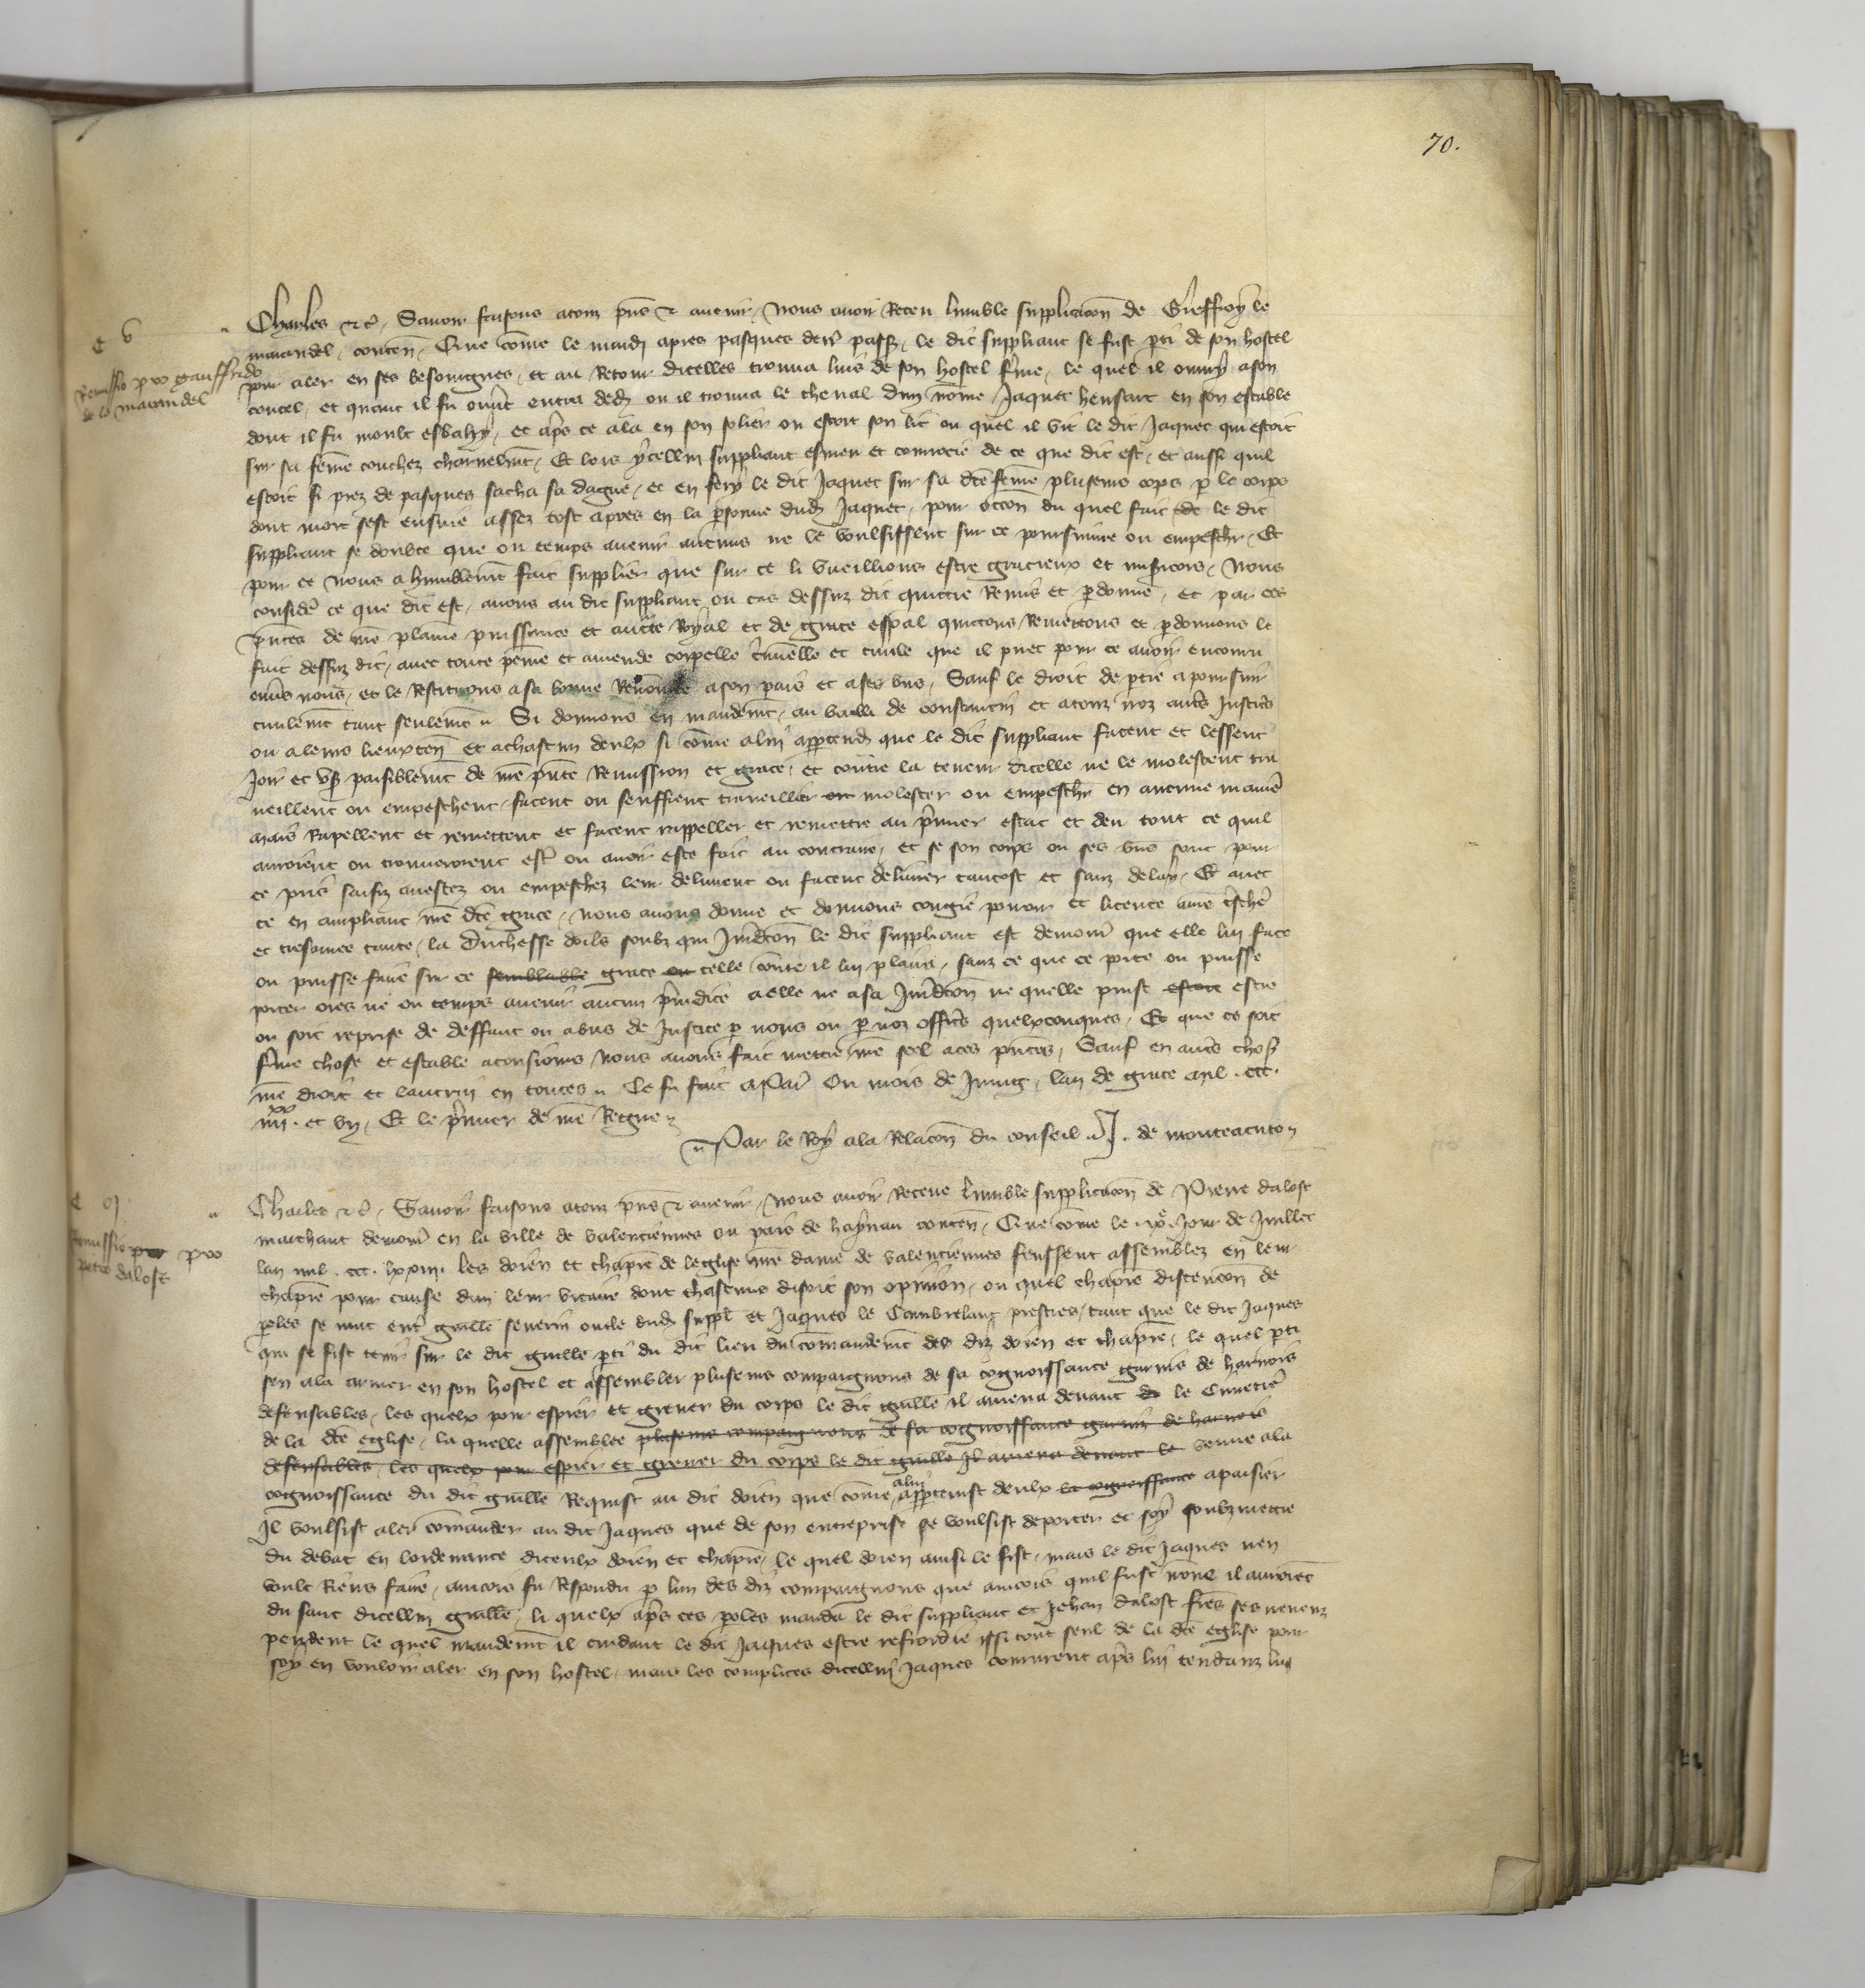 70.
C v
Remissio pro gauffrido
de le marandel
Charles etc. Savoir faisons a touz pñs et avenir, Nous avoir Receu lumble supplicacõn de Gieffroy le
contenñ, Que cõme le mardi apres pasques derr̃ passé, le dit suppliant se fust p̃ti de son hostel
pour aler en ses besoingnes, et au Retour dicelles trouva luis de son hostel fermé, le quel il ouvry a son
coutel, et quant il fu ouv̾t entra dedens ou il trouva le cheval dun nõme Jaquet heusart en son estable
dont il fu moult esbahy, et ap̃s ce ala en son solier ou estoit son lit ou quel il vit le dit Jaquet qui estoit
sur sa fẽme couchez charnelm̃t, Et lors ycellui suppliant esmeu et courrocié de ce que dit est, et aussi quil
estoit si prez de pasques sacha sa dague, et en fery le dit Jaquet sur sa dc̃e fẽme plusieurs cops p̱ le corps
dont mort sest ensuie assez tost apres en la p̱sonne dud Jaquet, pour occõn du quel fait le dit
suppliant se doubte que ou temps avenir aucuns ne le voulsissent sur ce poursuivre ou empescher, Et
pour ce nous a humblem̃t fait supplier que sur ce li vueillions estre gracieux et mis̾icors, Nous
consider̃ ce que dit est, avons au dit suppliant ou cas dessuz dit quittié Remis et p̱donné, et par ces
p̃ntes de nr̃e plaine puissance et auct̃e Royal et de grace esp̃al quittons Remettons et p̱donnons le
fait dessuz dit, avec toute peine et amende corpelle c̾minelle et civile que il puet pour ce avoir encouru
env̾s nous, et le Restituons a sa bonne Renõmee a son pais et a ses biens, Sauf le droit de p̱tie a poursuir
civilem̃t tant seulem̃t Si donnons en mandem̃t, au bailli de constantin et a touz noz aut̃s Justic̾s
ou a leurs lieuxten̄ et a chascun deulx si cõme a lui app̱tendra que le dit suppliant facent et lessent
Joir et us̾ paisiblem̃t de nr̃e p̃nte Remission et grace, et contre la teneur dicelle ne le molestent tra
veillent ou empeschent, facent ou seuffrent traveillier ou molester ou empescher en aucune manier̃
mais Rapellent et remettent et facent rappeller et remettre au p̾mier estat et deu tout ce quil
auroient ou trouveroient estr̃ ou avoir esté fait au contraire, et se son corps ou ses biens sont pour
ce pris saisiz arrestez ou empeschez leur delivrent ou facent delivrer tantost et sanz delay, Et avec
ce en ampliant nr̃e dc̃e grace, nous avons donné et donnons congié povoir et licence a nr̃e t̾schiere
et tresamee tante, la Duchesse dorliens soubz qui Jurid̃con le dit suppliant est demour̃ que elle lui face
ou puisse faire sur ce semblable grace ou telle cõme il lui plaira, sanz ce que ce porte ou puisse
porter ores ne ou temps avenir aucun p̾judice a elle ne a sa Jurid̃con ne quelle puist estre estre
ou soit reprise de deffaut ou abus de Justice p̱ nous ou p̱ noz offic̾s quelxconques, Et que ce soit
ferme chose et estable a tousiours, Nous avons fait mettre nr̃e seel a ces p̃ntes, Sauf en aut̃s choses
nr̃e droit et lautrui en toutes Ce fu fait a Par̃ Ou mois de Juing, lan de grace mil. ccc.
iiijxx. et un, Et le p̾mier de nr̃e Regne
Par le Roy a la Relacõn du conseil J. de monteacuto
C vj
Remissio pro
petro dalost
Charles etc. Savoir faisons a touz p̃ns et avenir, Nous avoir Receue lumble supplicacõn de Pierre dalost
marchant demour̃ en la ville de valenciennes ou pais de haynau contenñ, Que cõme le ixe. Jour de Juillet
lan mil. ccc. lxxiiij. les doien et chapr̃e de leglise nr̃e dame de valenciennes feussent assemblez en leur
chapr̃e pour cause dun leur vicaire dont chascuns disoit son opinion, ou quel chapr̃e discencõn de
p̱oles se mut entr̃ guille severin oncle dud suppl̃ et Jaques le Cambrelanc prestres, tant que le dit Jaques
qui se fist tenir sur le dit guille p̱ti du dit lieu du cõmandem̃t des diz doien et chapr̃e, le quel p̱ti
sen ala armer en son hostel et assembler plusieurs compaignons de sa cognoissance garnis de harnois
defensables, les quelx pour espier et grever du corps le dit guille il amena devant le Cimetier̃
de la dc̃e eglise, la quelle assemblee plusieurs compaignons de sa cognoissance garnis de harnois
defensables, les quelx pour espier et grever du corps le dit guille il amena devant le venue a la
cognoissance du dit guille Requist au dit doien que cõme a lui app̱tenist deulx et cognoissance apaisier
Il voulsist aler cõmander au dit Jaques que de son entreprise se voulsist deporter et soy soubzmettre
du debat en lordenance diceulx doien et chapr̃e, le quel doien ainsi le fist, mais le dit Jaques nen
voult Riens faire, aincois fu Respondu p̱ lun des diz compaignons que aincois quil fust none il auroient
du sanc dicellui guille, li quelx ap̃s ces p̱oles manda le dit suppliant et Jehan dalost freres ses neveuz
pendent le quel mandem̃t il cuidant le dit Jaques estre refroidié issi tout seul de la dc̃e eglise pour
soy en vouloir aler en son hostel, mais les complices dicellui Jaques coururent ap̃s lui tendanz lui